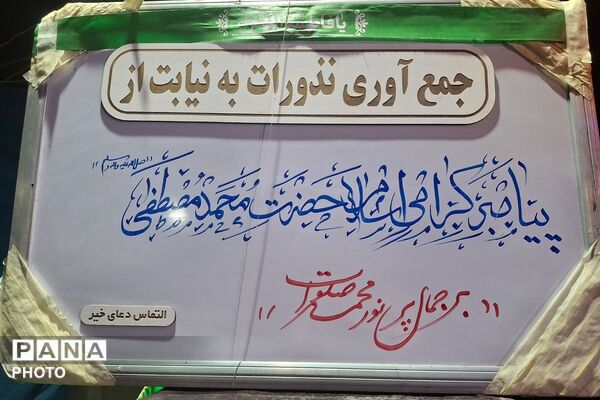 جمع آوری نذورات به نیابت از
پیامبر گرامی اسلام حضرت محمد مصطفی
"صلی الله علیه و آله و سلم"
"بر جمال پر نور محمد صلوات"
التماس دعای خیر
PANA
PHOTO